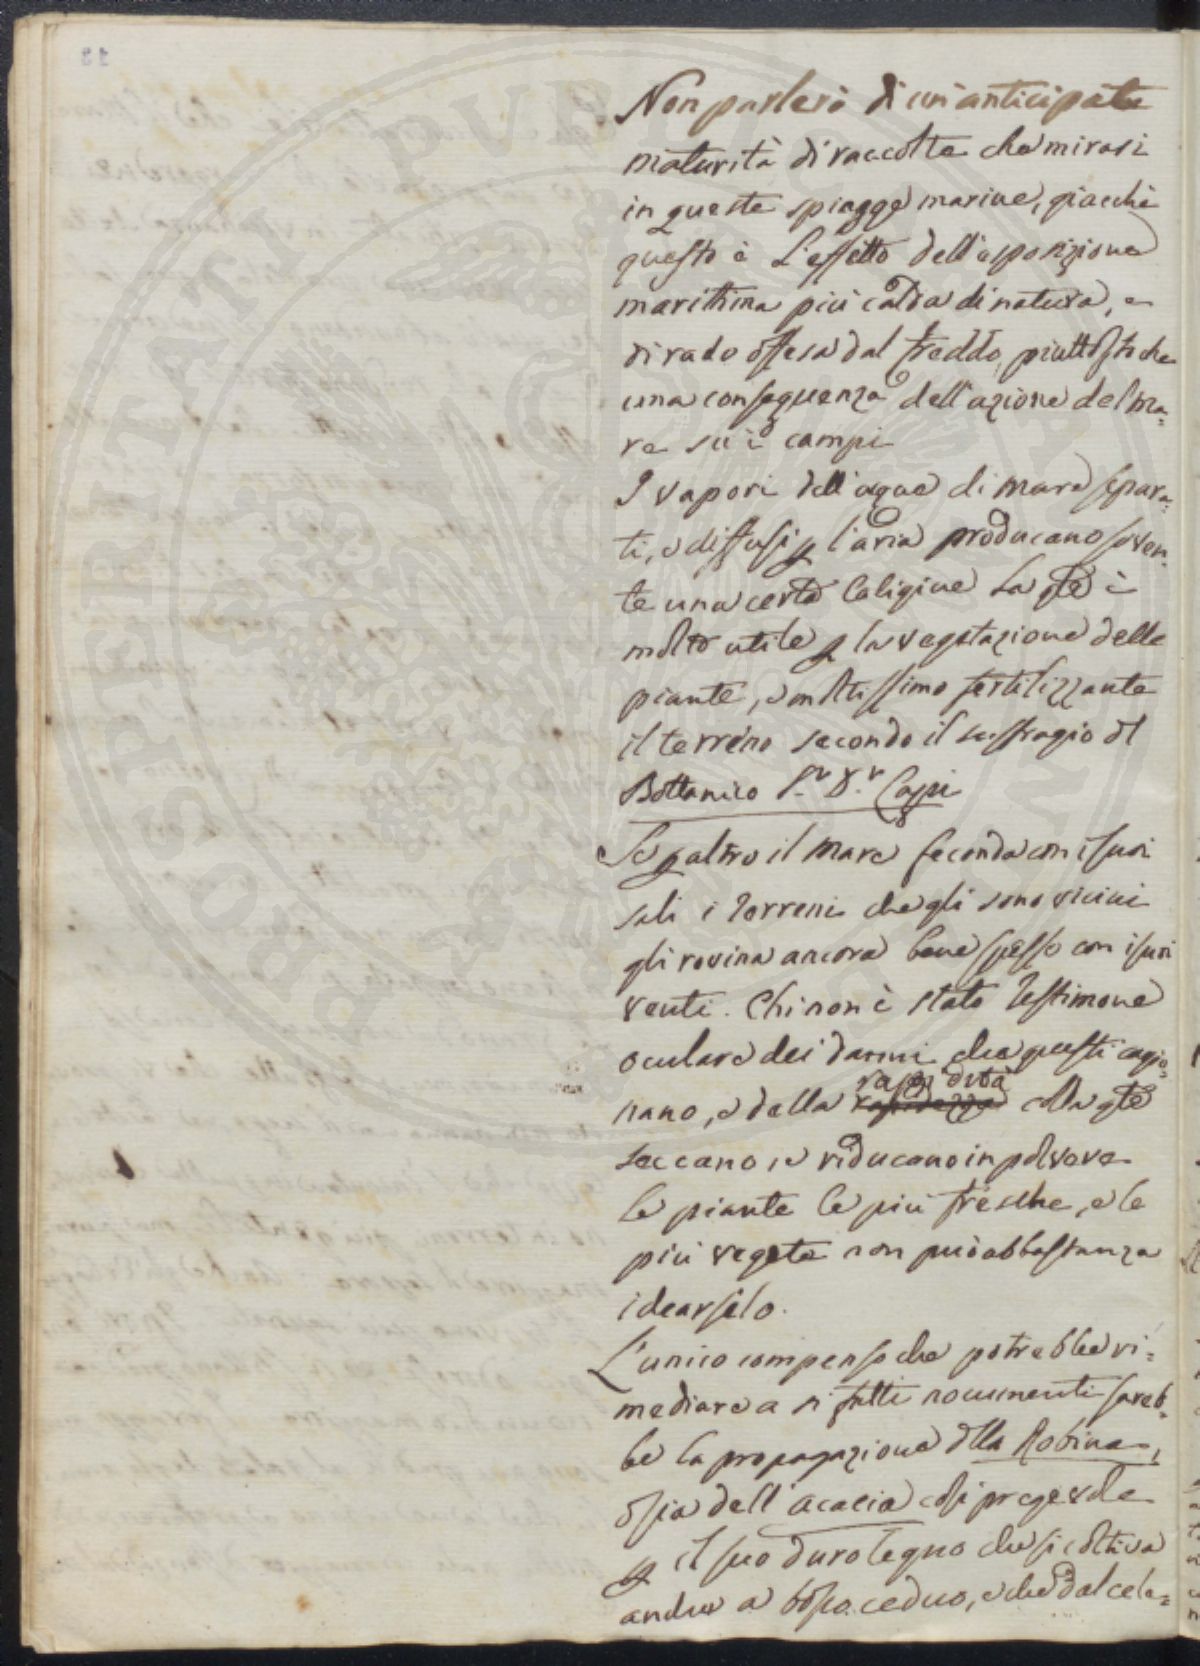 Non parlerò di un'anticipata
maturità di raccolta che mirasi
in queste spiagge marine, giacchè
questo è L'effetto dell'esposizione
marittima più calda di natura, e
di rado offesa dal freddo, piuttosto che
una conseguenza dell'azione del ma=
re su i campi
I vapori dell'acque di mare separa=
ti, e diffusi p l'aria producano soven=
te una certa Caligine La qle è
molto utile p la vegetazione delle
piante, e moltissimo fertilizzante
il terreno secondo il suffragio dl
Bottanico S.r D.r
Se p altro il mare feconda con i suoi
sali i Terreni che gli sono vicini
gli rovina ancora bene spesso con i suoi
venti. Chi non è stato Testimone
oculare dei danni che questi cagio=
nano, e della rapidità colla qle
seccano, e riducano in polvere
le piante le più fresche, e le
più vegete non può abbastanza
idearselo.
L'unico compenso che potrebbe ri=
mediare a sì fatti nocumenti sareb=
be la propagazione dlla Robinia,
ossia dell'acacia così pregevole
p il suo duro legno che si coltiva
anche a bosco ceduo, e che dal cele=